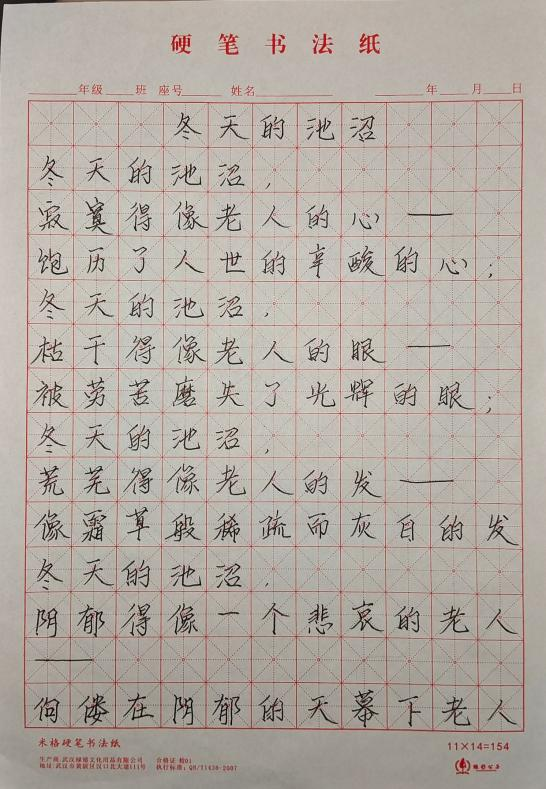 硬笔书法纸
年级 班 座号 姓名 年 月 日
冬天的池沼
冬天的池沼，
寂寞得像老人的心——
饱历了人世的辛酸的心；
冬天的池沼，
枯干得像老人的眼——
被劳苦磨失了光辉的眼；
冬天的池沼，
荒芜得像老人的发——
像霜草般稀疏而灰白的发
冬天的池沼，
阴郁得像一个悲哀的老人
——
佝偻在阴郁的天幕下老人
米格硬笔书法纸
11×14=154
生产商:武汉绿博文化用品有限公司 合格证 检01
执行标准:QB/T1438-2007